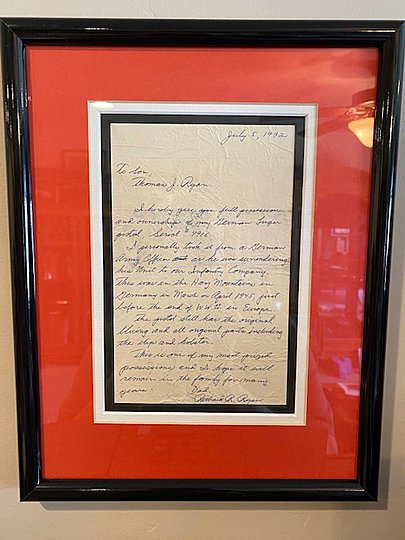 July 5, 1992
To Son,
Thomas J. Ryan
I hereby give you full possession
and ownership of my German Luger
pistol Serial # 9916.
I personally took it from a German
Army Officer as he was surrendering
his Unit to our Infantry Company.
This was in the Harz Mountains in
Germany in March or April 1945 just
before the end of WW II in Europe.
The pistol still has the original
bluing and all original parts including
the clip and holster.
This is one of my most prized
possessions and I hope it will
remain in the family for many
years.
Dad
Richard R. Ryan